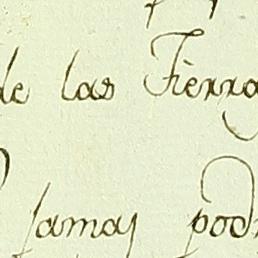 de las Tierra
jamas pod